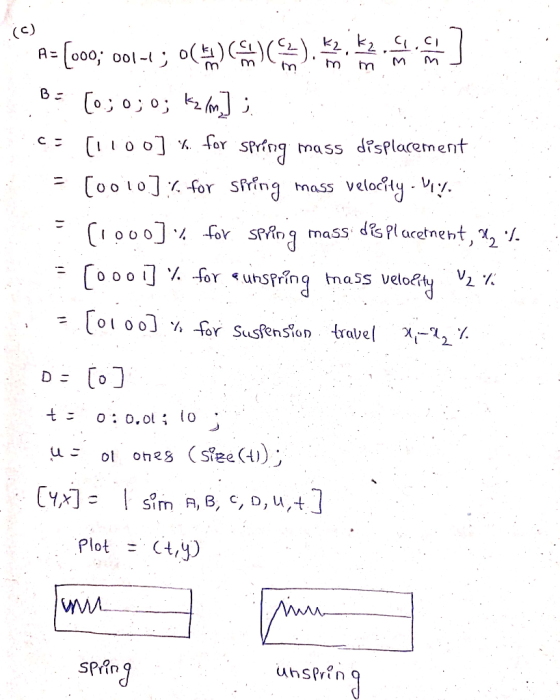 (c)
A = [000; 001-1; 0(k1/m)(c1/m)(c2/m). k2/m. k2/m. c1/m. c1/m]
B = [0; 0; 0; k2/m2];
C = [1 1 0 0] % for spring mass displacement
= [0 0 1 0] % for spring mass velocity - V1 %.
= [1 0 0 0] % for spring mass displacetnent, x2 %.
= [0 0 0 1] % for unspring mass velocity V2 %
= [0 1 0 0] % for suspension travel x1-x2 %.
D = [0]
t = 0: 0.01: 10;
u = 01 ones (size(t1);
[Y,x] = | sim A, B, C, D, u, t]
Plot = (t,y)
spring unspring